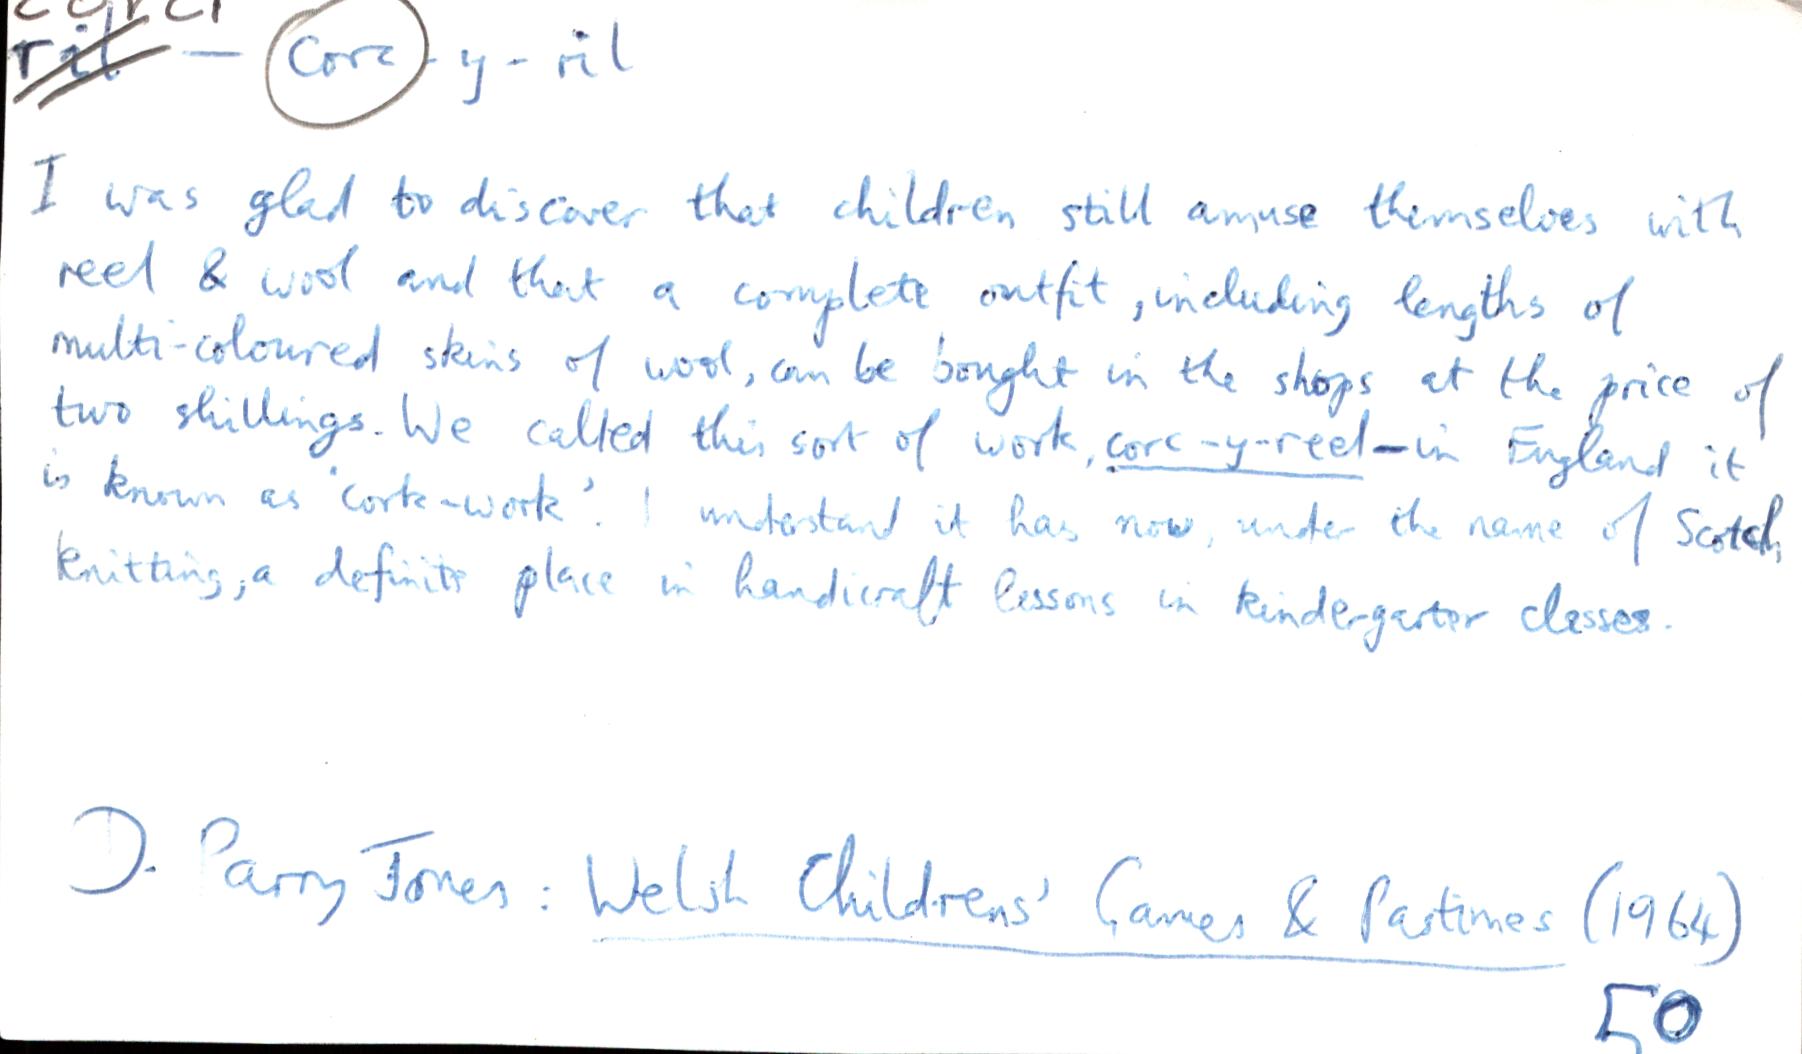 ril — corc-y-ril
I was glad to discover that children still amuse themselves with
reel & wool and that a complete outfit, including lengths of
multi-coloured skins of wool, can be bought in the shops at the price of
two shillings. We called this sort of work, corc-y-reel – in England it
is known as 'cork-work'. I understand it has now, under the name of Scotch
knitting, a definite place in handicraft lessons in kindergarter classes.
D. Parry Jones : Welsh Childrens' Games & Pastimes (1964)
50